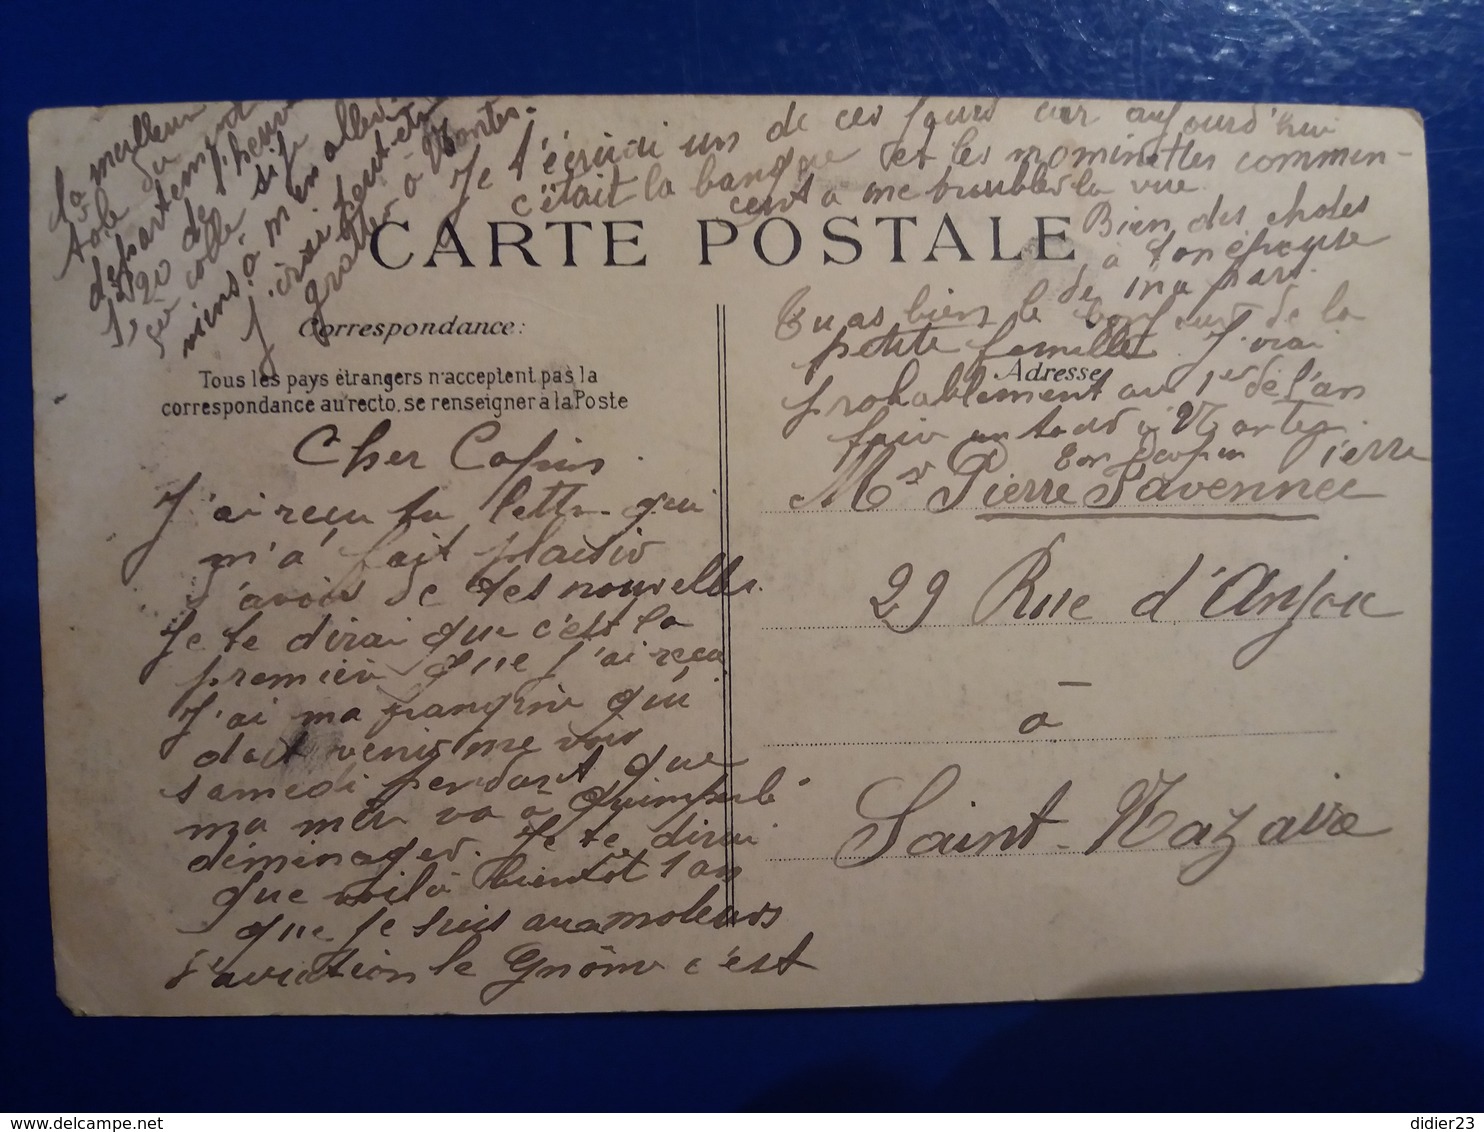 la meilleur
tôle du
département
1,20 de l'heure
ça colle si
moins à m'en aller
J'irai peut-être
gratter à Nantes.
Je t'écrirai un de ces jours car aujourd'hui
c'était la banque et les mominettes commen-
cent a me troubler la vue.
CARTE POSTALE
Bien des choses
à ton épouse
de ma part.
Correspondance:
Tous les pays étrangers n'acceptent pas la
correspondance au recto, se renseigner à la Poste
Cher Copin.
J'ai reçu ta lettre qui
m'a fait plaisir
d'avoir de tes nouvelles.
Je te dirai que c'est la
premièr que j'ai reçu
J'ai ma frangine qui
doit venir me voir
samedi pendant que
ma mèr va à Quimperlé
déménager. Je te dirai
que voilà bientôt 1 an
que je suis aux moteurs
d'aviation le Gnôme c'est
Tu as bien le bonjour de la
petite famille. J'irai
Adresse
probablement au 1er de l'an
fair un tour à Nantes.
Ton Copin Pierre
Mr Pierre Savennec
29 Rue d'Anjou
à
Saint-Nazaire
didier23